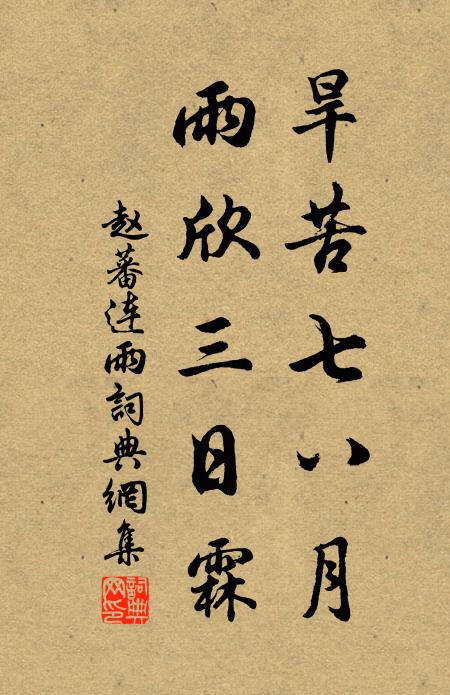 旱苦七八月
雨欣三日霖
赵蕃連雨詞典網集
詞典网印